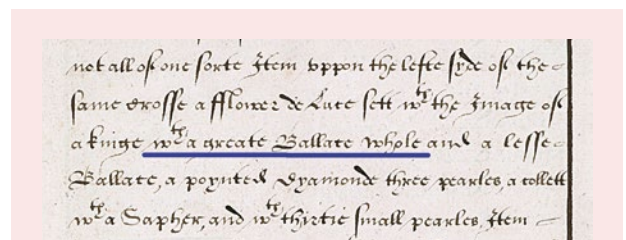 not all of one sorte Item vppon the lefte syde of the
same crosse a fflower de Luce sett wth the Image of
a kinge wth a greate Ballace whole and a lesse
Ballace, a poynted dyamonde three pearles, a collett
wth a Sapher, and wth thirtie small pearles, Item